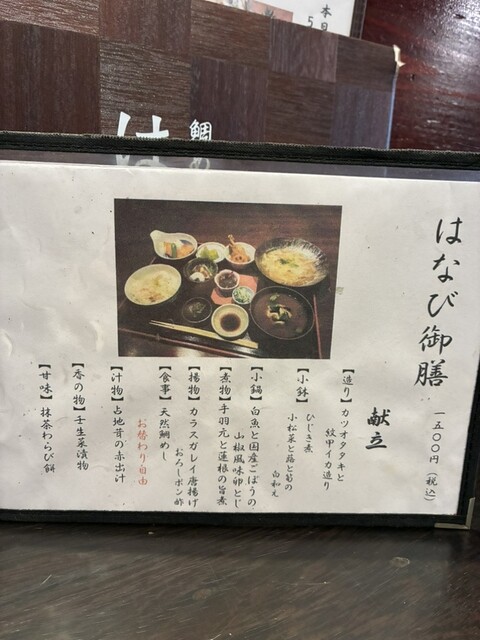 はなび御膳
一五〇〇円（税込）
献立
【造り】カツオタタキと
紋甲イカ造り
【小鉢】ひじき煮
小松菜と菇と筍の
白和え
【小鍋】白魚と国産ごぼうの
山椒風味卵とじ
【煮物】手羽元と蓮根の旨煮
【揚物】カラスガレイ唐揚げ
おろしポン酢
【食事】天然鯛めし
お替わり自由
【汁物】占地茸の赤出汁
【香の物】壬生菜漬物
【甘味】抹茶わらび餅
鯛
は
本日
5